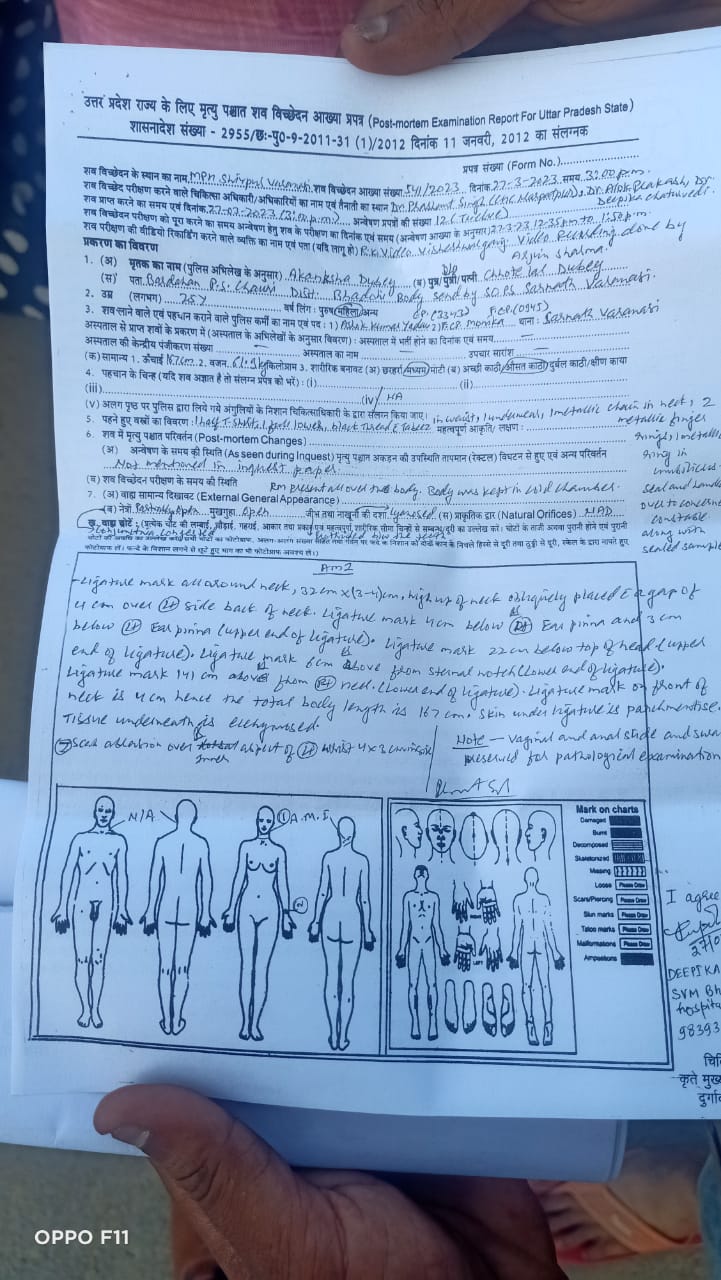 उत्तर प्रदेश राज्य के लिए मृत्यु पश्चात शव विच्छेदन आख्या प्रपत्र (Post-mortem Examination Report For Uttar Pradesh State)
शासनादेश संख्या - 2955/छः-पु0-9-2011-31 (1)/2012 दिनांक 11 जनवरी, 2012 का संलग्नक
प्रपत्र संख्या (Form No.)
शव विच्छेदन के स्थान का नाम MPH Shivpur Varanasi शव विच्छेदन आख्या संख्या 541/2023 दिनांक 27-3-2023 समय 3:00 p.m.
शव विच्छेदन परीक्षण करने वाले चिकित्सा अधिकारी/अधिकारियों का नाम एवं तैनाती का स्थान Dr. Prashant Singh Dr. Alok Prakash, Dr. Deepika Chaturvedi
शव प्राप्त करने का समय एवं दिनांक अन्वेषण प्रपत्रों की संख्या 12 (Twelve)
शव विच्छेदन परीक्षण को पूरा करने का समय अन्वेषण हेतु शव के परीक्षण का दिनांक एवं समय (अन्वेषण आख्या के अनुसार) 27-3-23 12:35pm to 1:50 p.m.
शव परीक्षण की वीडियो रिकार्डिंग करने वाले व्यक्ति का नाम एवं पता (यदि लागू हो) R.K. Video Visheshwarganj Video Recording done by
Arjun Sharma.
प्रकरण का विवरण
1. (अ) मृतक का नाम (पुलिस अभिलेख के अनुसार) Akanksha Dubey (ब) पुत्र/पुत्री/पत्नी D/o Chhote lal Dubey
(स) पता Bardahan P.S. Chauri Dist. Bhadohi Body send by SO PS Sarnath Varanasi.
2. उम्र (लगभग) 25 y वर्ष लिंग: पुरुष/महिला/अन्य CP (3343) F.CP (0945)
3. शव लाने वाले एवं पहचान करने वाले पुलिस कर्मी का नाम एवं पद : 1) Ashok Kumar Yadav 2) F.CP. Monika थाना: Sarnath Varanasi
अस्पताल से प्राप्त शवों के प्रकरण में (अस्पताल के अभिलेखों के अनुसार विवरण) : अस्पताल में भर्ती होने का दिनांक एवं समय
अस्पताल की केन्द्रीय पंजीकरण संख्या अस्पताल का नाम उपचार सारांश
(क) सामान्य 1. ऊँचाई 167 cm 2. वजन किलोग्राम 3. शारीरिक बनावट (अ) छरहरा/मध्यम/मोटी (ब) अच्छी काठी/औसत काठी/दुर्बल काठी/क्षीण काया
4. पहचान के चिन्ह (यदि शव अज्ञात है तो संलग्न प्रपत्र को भरें) : (i) (ii)
(iii) (iv) NA
(v) अलग पृष्ठ पर पुलिस द्वारा लिये गये अंगुलियों के निशान चिकित्साधिकारी के द्वारा संलग्न किया जाए।
5. पहने हुए वस्त्रों का विवरण : 1 half T-shirt, 1 full lower, black thread in waist, 1 underwear, 1 metallic chain in neck, 2 metallic finger
rings, 1 metallic ring in umbilicus
महत्वपूर्ण आकृति/लक्षण :
6. शव में मृत्यु पश्चात परिवर्तन (Post-mortem Changes)
(अ) अन्वेषण के समय की स्थिति (As seen during Inquest) मृत्यु पश्चात अकड़न की उपस्थिति तापमान (रेक्टल) विघटन से हुए एवं अन्य परिवर्तन
Not mentioned in inquest paper.
(ब) शव विच्छेदन परीक्षण के समय की स्थिति RM present all over the body. Body was kept in cold chamber.
seal and handed over to concerned constable along with sealed sample
7. (अ) वाह्य सामान्य दिखावट (External General Appearance)
(ब) नेत्रों Partially open मुखगुहा Open जीभ तथा नाखूनों की दशा cyanosed (स) प्राकृतिक द्वार (Natural Orifices) NAD
Conjunctiva congested
ख. वाह्य चोटें :
AMI
Ligature mark all around neck, 32 cm x (3-4) cm, high up of neck obliquely placed a gap of
4 cm over side back of neck. Ligature mark 4 cm below Ear pinna and 3 cm
below Ear pinna (upper end of ligature). Ligature mark 22 cm below top of head (upper
end of ligature). Ligature mark 6 cm above from sternal notch (lower end of ligature).
Ligature mark 141 cm above from heel. (lower end of ligature). Ligature mark on front of
neck is 4 cm hence the total body length is 167 cm. Skin under ligature is parchmentise.
Tissue underneath is ecchymosed.
② Scab abrasion over inner aspect of wrist 4 x 3 cm in size
Note - Vaginal and anal slide and swab
preserved for pathological examination
N/A
① A.M.I
②
Mark on charts
Damaged
Burnt
Decomposed
Skeletonized
Missing
Loose Please Draw
Scars/Piercing Please Draw
Skin marks Please Draw
Tatoo marks Please Draw
Malformations Please Draw
Amputations
RIGHT
LEFT
I agree
DEEPIKA
SVM Bh
hospita
98393
चिि
कृते मुख
दुर्गा
OPPO F11